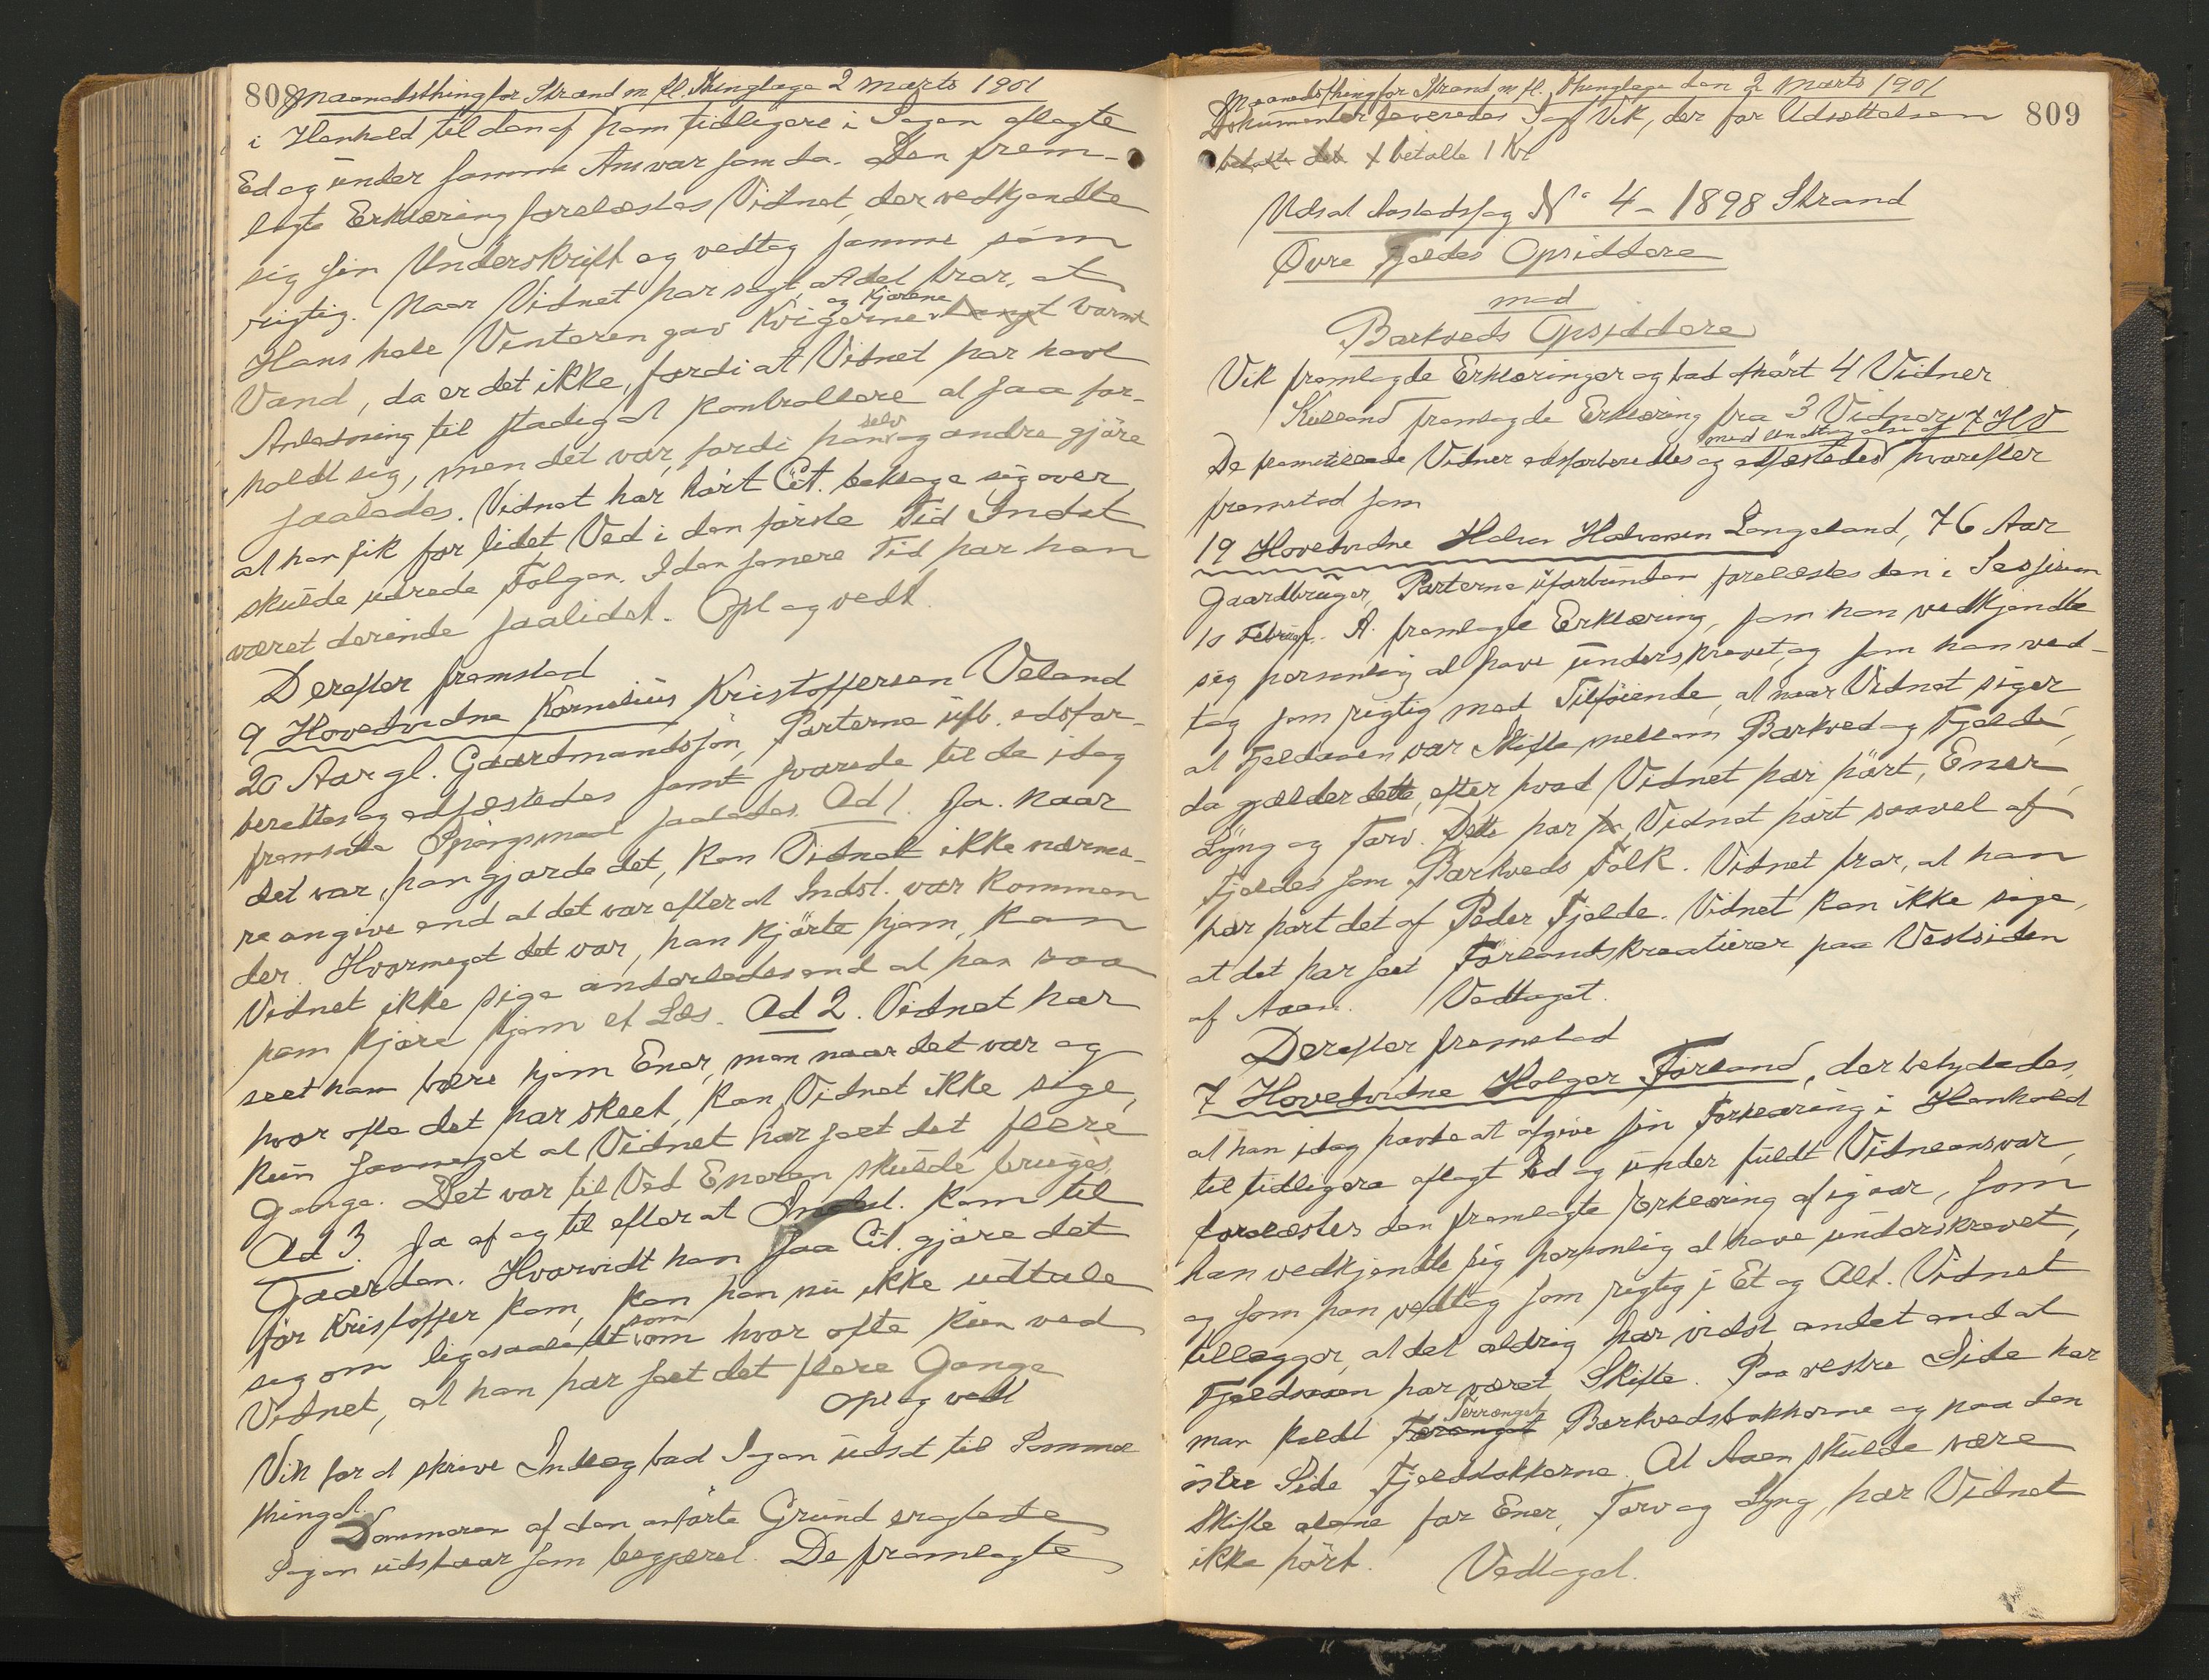 808
Maanedsthing for Strand m fl. Thinglage 2 Marts 1901
i Henhold til den af ham tidligere i Sagen aflagte
Ed og under samme Ansvar som da. Den frem-
lagte Erklæring forelæstes Vidnet, der vedkjendte
sig sin Underskrift og vedtog samme som
rigtig. Naar Vidnet har sagt, at det tror, at
Hans hele Vinteren gav Kvigerne og Kjørene langt varmt
Vand, da er det ikke, fordi at Vidnet har havt
Anledning til stadig at kontrollere at saa for-
holdt sig, men det var, fordi han selv og andre gjøre
saaledes. Vidnet har hørt Cit. beklage sig over,
at han fik for lidet Ved i den første Tid Indst
skulde udrede Følgen. I den senere Tid har han
været derinde saalidet. Opl og vedt.
Derefter fremstod
9 Hovedvidne Kornelius Kristoffersen Veland
20 Aar gl. Gaardmandssøn, Parterne ufb. edsfor-
berettes og edfæstedes samt svarede til de idag
fremsatte Spørgsmaal saaledes. Ad 1. Ja. Naar
det var, han gjorde det, kan Vidnet ikke nærme-
re angive end at det var efter at Indst. var kommen
der. Hvormeget det var, han kjørte hjem, kan
Vidnet ikke sige anderledes end at han saa
ham kjøre hjem et Læs. Ad 2. Vidnet har
seet ham bære hjem Ener, men naar det var og
hvor ofte det har skeet, kan Vidnet ikke sige,
kun saameget at Vidnet har seet det flere
Gange. Det var til Ved Eneren skulde bruges.
Ad 3. Ja af og til efter at Indst. kom til
Gaarden. Hvorvidt han saa Cit. gjøre det
før Kristoffer kom, kan han nu ikke udtale
sig om ligesaalidt som om hvor ofte kun ved
Vidnet, at han har seet det flere Gange
Opl og vedt
Vik for at skrive Indlæg bad Sagen udsat til Sommer
thinget.
Dommeren af den anførte Grund eragtede
Sagen udstaar som begjæret. De fremlagte
Maanedsthing for Strand m fl. Thinglage den 2 Marts 1901
809
Dokumenter leveredes Sagf Vik, der for Udsættelsen
betalte det betalte 1 Kr
Udsat Aastedssag No 4 - 1898 Strand
Øvre Fjeldes Opsiddere
mod
Barkveds Opsiddere
Vik fremlagde Erklæringer og bad afhørt 4 Vidner
Kulland fremlagde Erklæring fra 3 Vidner
De fremstillede Vidner edsforberedtes og edfæstedes med Undtagelse af 7 HV hvorefter
fremstod som
19 Hovedvidne Halvor Halvorsen Langeland, 76 Aar
Gaardbruger, Parterne uforbunden forelæstes den i Sessionen
10 Februar f. A. fremlagte Erklæring, som han vedkjendte
sig personlig at have underskrevet, og som han ved-
tog som rigtig med Tilføiende, at naar Vidnet siger
at Fjeldaaen var Skifte mellem Barkved og Fjelde,
da gjælder dette, efter hvad Vidnet har hørt, Ener,
Lyng og Torv. Dette har Vidnet hørt saavel af
Fjeldes som Barkveds Folk. Vidnet tror, at han
har hørt det af Peder Fjelde. Vidnet kan ikke sige,
at det har seet Førlandskreaturer paa Vestsiden
af Aaen. Vedtaget.
Derefter fremstod
7 Hovedvidne Holger Førland, der betydedes,
at han idag havde at afgive sin Forklaring i Henhold
til tidligere aflagt Ed og under fuldt Vidneansvar,
forelæstes den fremlagte Erklæring af igaar, som
han vedkjendte sig personlig at have underskrevet,
og som han vedtog som rigtig i Et og Alt. Vidnet
tillægger, at det aldrig har vidst andet end at
Fjeldaaen har været Skifte. Paa vestre Side har
man kaldt Terrænget Barkvedsbakkerne og paa den
østre Side Fjeldebakkerne. At Aaen skulde være
Skifte alene for Ener, Torv og Lyng, har Vidnet
ikke hørt. Vedtaget.